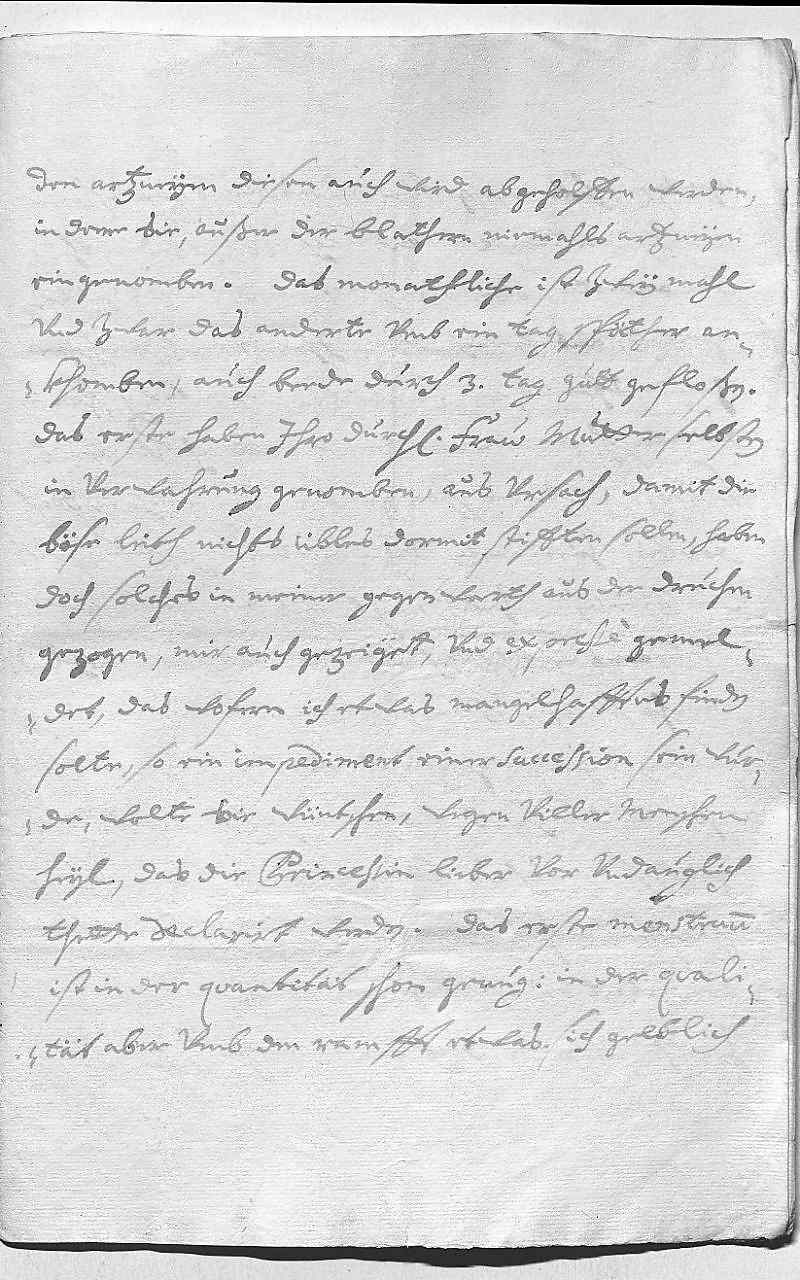 den artzneyen diesen auch wird abgeholffen werden,
in deme Sie, außer der blathern niemahls artzneyen
eingenomben. Das monathliche ist Zwey mahl
Vnd Zwar das anderte Vmb ein tag spöther an-
-khomben, auch beede durch 3. tag gutt gefloßen.
das erste haben Ihro durchl. Fraw Mutter selbsten
in Verwahrung genomben, aus Vrsach, damit die
böse leüth nichts übles dormit stifften sollen, haben
doch solches in meiner gegenwarth aus der druchen
gezogen, mir auch gezeiget, Vnd gemel-
-det, das wofern ich etwas mangelhafftes finden
solte, so ein impediment einer Succession sein wur-
-de, wolte Sie wüntschen, wegen Viller Menschen
heyl, das die Princessin lieber Vor Vndauglich
declarirt werden. Das erste menstruũ
ist in der quantitat schon genug: in der quali-
-tät aber Vmb den rampfft etwas gelblich